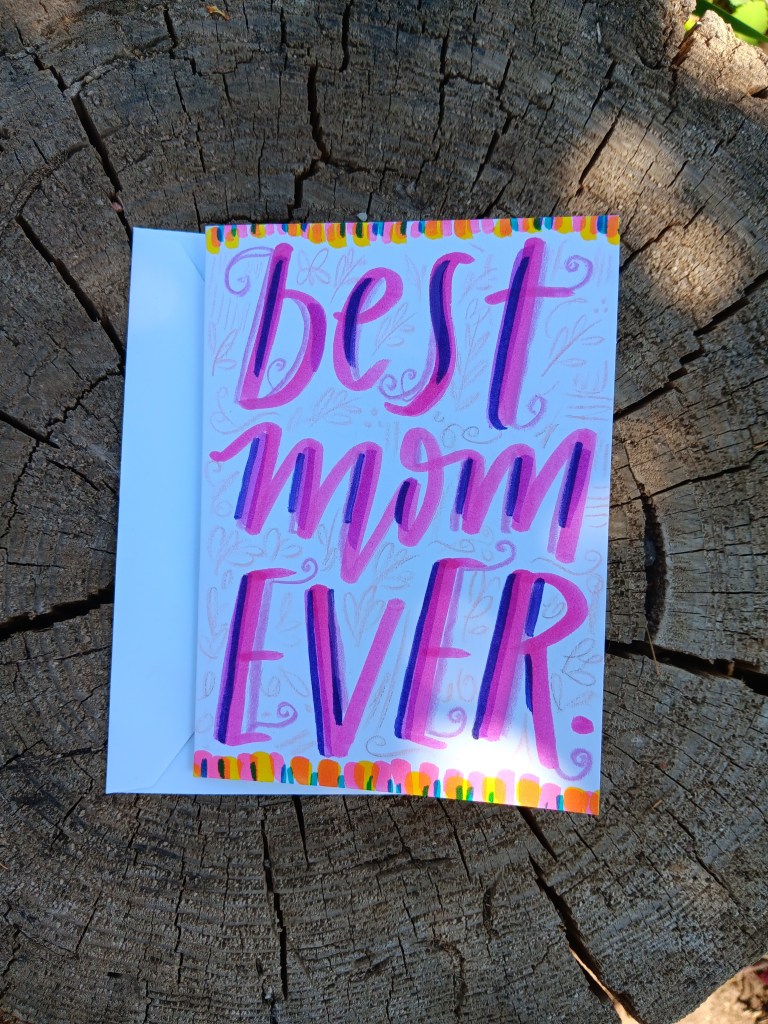 best
mom
EVER.